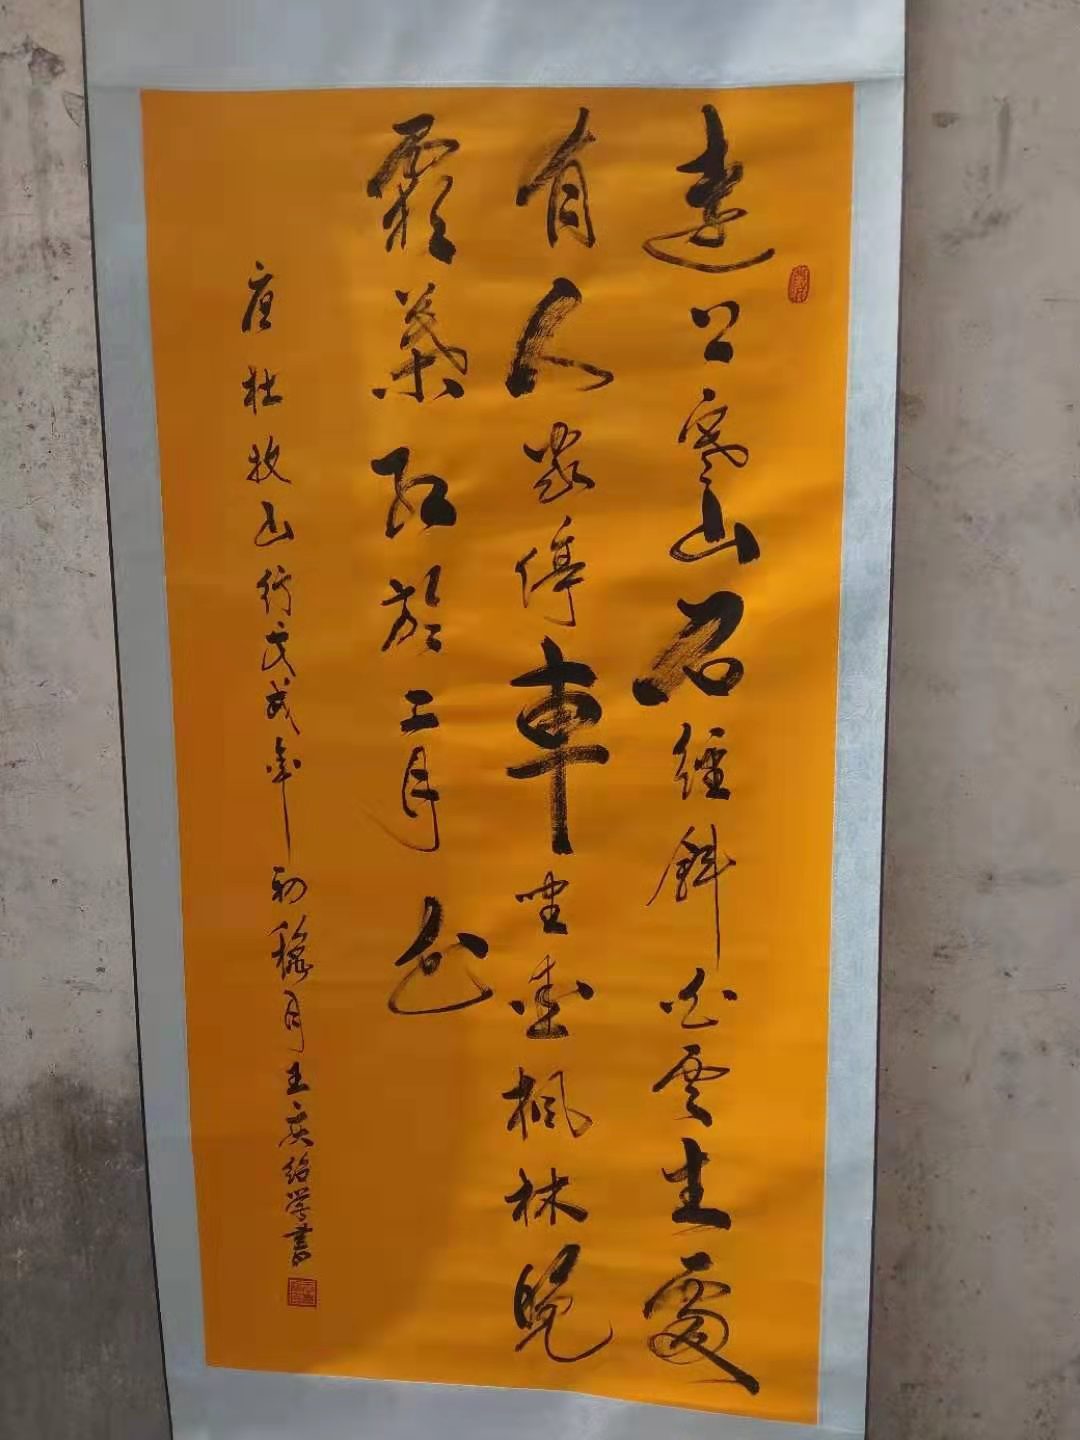 遠上寒山石經斜白雲生處
有人家停車坐愛楓林晚
霜葉紅於二月花
唐杜牧山行戊戌年初穐月王庚紹學書